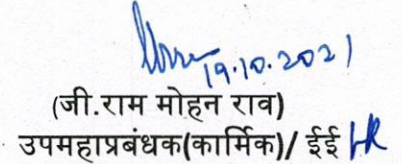 19.10.2021
(जी.राम मोहन राव)
उपमहाप्रबंधक(कार्मिक)/ ईई HR